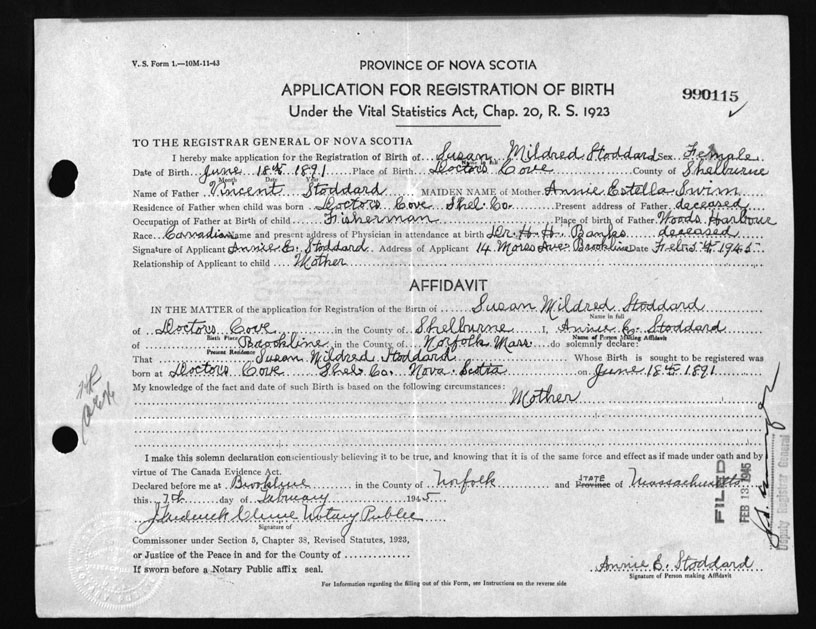 V. S. Form 1.—10M-11-43
PROVINCE OF NOVA SCOTIA
APPLICATION FOR REGISTRATION OF BIRTH
990115
Under the Vital Statistics Act, Chap. 20, R. S. 1923
TO THE REGISTRAR GENERAL OF NOVA SCOTIA
I hereby make application for the Registration of Birth of Susan Mildred Stoddard Sex Female
Name in full
Date of Birth June 18th 1891 Place of Birth Doctors Cove County of Shelburne
Month Date Year
Name of Father Vincent Stoddard MAIDEN NAME of Mother Annie Estella Swim
Residence of Father when child was born Doctors Cove Shel. Co. Present address of Father deceased
Occupation of Father at Birth of child Fisherman Place of birth of Father Woods Harbour
Race Canadian Name and present address of Physician in attendance at birth Dr. H. H. Banks deceased
Signature of Applicant Annie E. Stoddard Address of Applicant 14 Morss Ave Brookline Date Feb. 5th 1945
Relationship of Applicant to child Mother
AFFIDAVIT
IN THE MATTER of the application for Registration of the Birth of Susan Mildred Stoddard
Name in full
of Doctors Cove in the County of Shelburne I, Annie E. Stoddard
Birth Place Name of Person Making Affidavit
of Brookline in the County of Norfolk Mass. do solemnly declare:
Present Residence
That Susan Mildred Stoddard Whose Birth is sought to be registered was
born at Doctors Cove Shel. Co. Nova Scotia on June 18th 1891
My knowledge of the fact and date of such Birth is based on the following circumstances:
Mother
I make this solemn declaration conscientiously believing it to be true, and knowing that it is of the same force and effect as if made under oath and by
virtue of The Canada Evidence Act.
Declared before me at Brookline in the County of Norfolk and STATE Province of Massachusetts
this 7th day of February 1945
Notary Public
Signature of
Commissioner under Section 5, Chapter 38, Revised Statutes, 1923,
or Justice of the Peace in and for the County of
If sworn before a Notary Public affix seal.
Annie E. Stoddard
Signature of Person making Affidavit
For Information regarding the filling out of this Form, see Instructions on the reverse side
FILED
FEB 13 1945
Deputy Registrar General